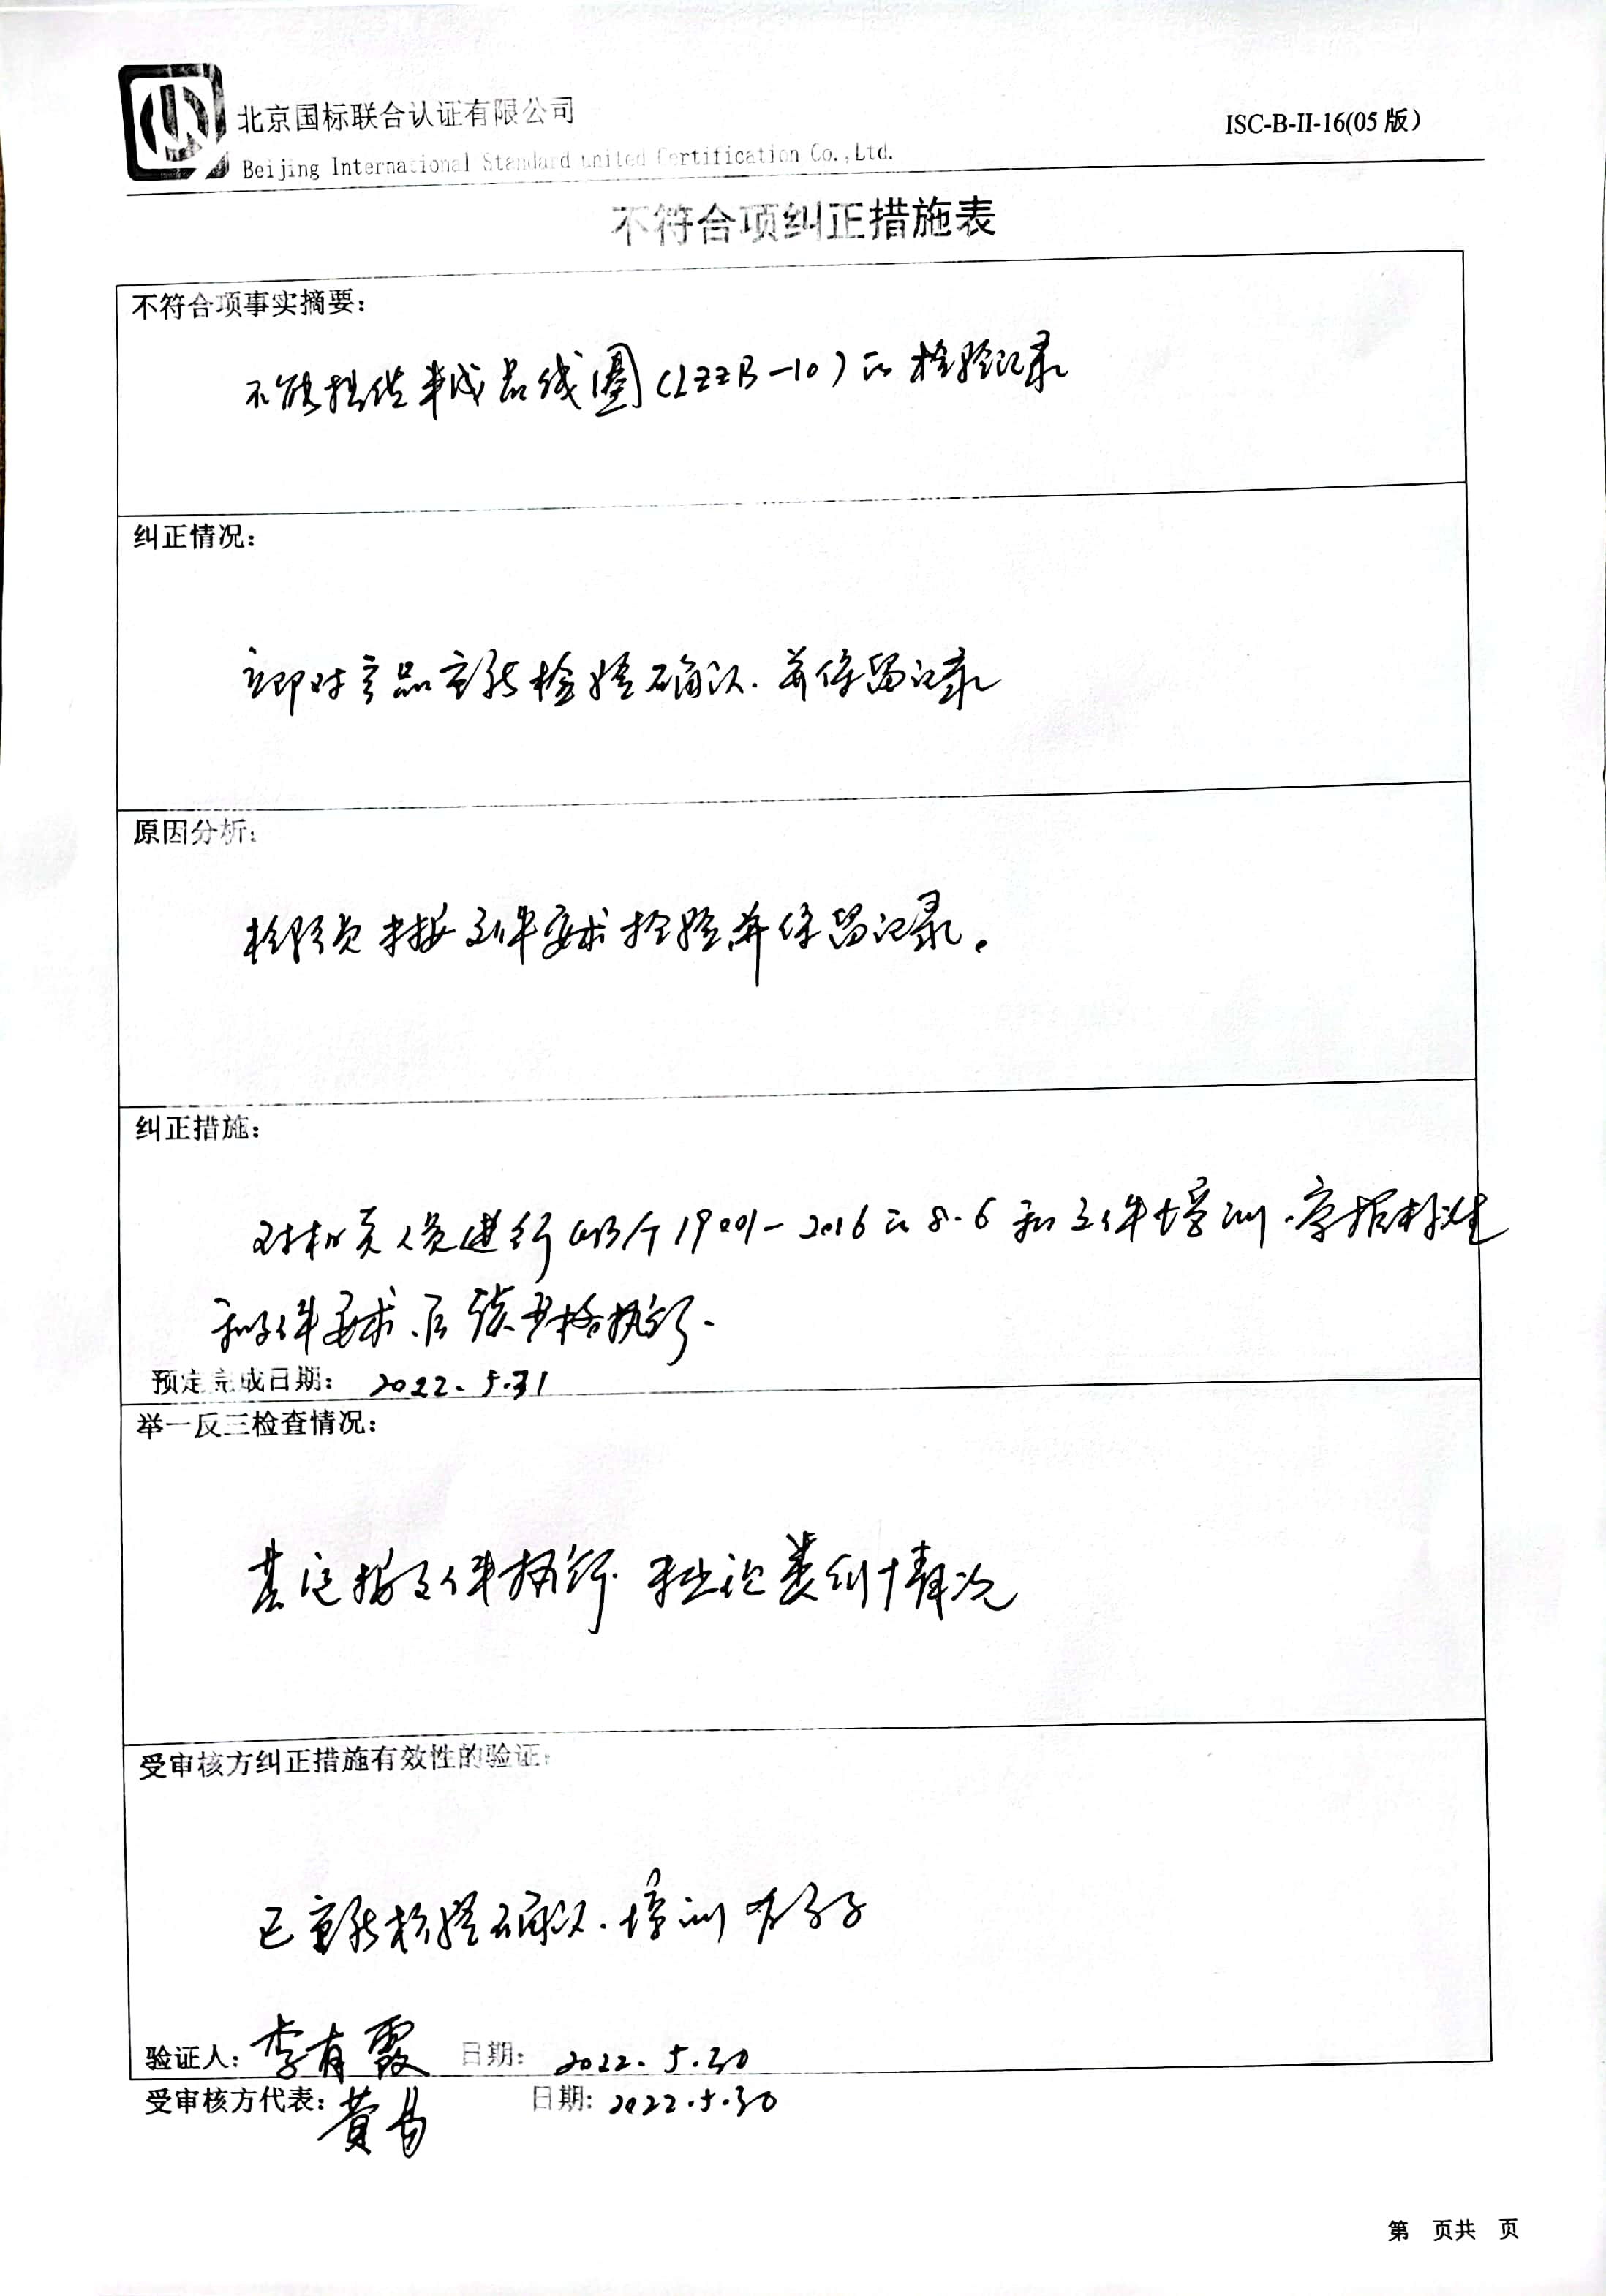 北京国标联合认证有限公司
ISC-B-II-16(05 版)
Beijing International Standard united Certification Co.,Ltd.
不符合项纠正措施表
不符合项事实摘要:
不能提供半成品线圈(LZZB-10)的检验记录
纠正情况:
立即对产品重新检验确认.并保留记录
原因分析:
检验员未按文件要求检验并保留记录。
纠正措施:
对相关人员进行GB/T19001-2016的8.6和文件培训.掌握标准
和文件要求.后续严格执行.
预定完成日期: 2022.5.31
举一反三检查情况:
其它按文件执行.未出现类似情况
受审核方纠正措施有效性的验证:
已重新检验确认.培训有
验证人: 李有霞 日期: 2022.5.30
受审核方代表: 黄易 日期: 2022.5.30
第 页共 页